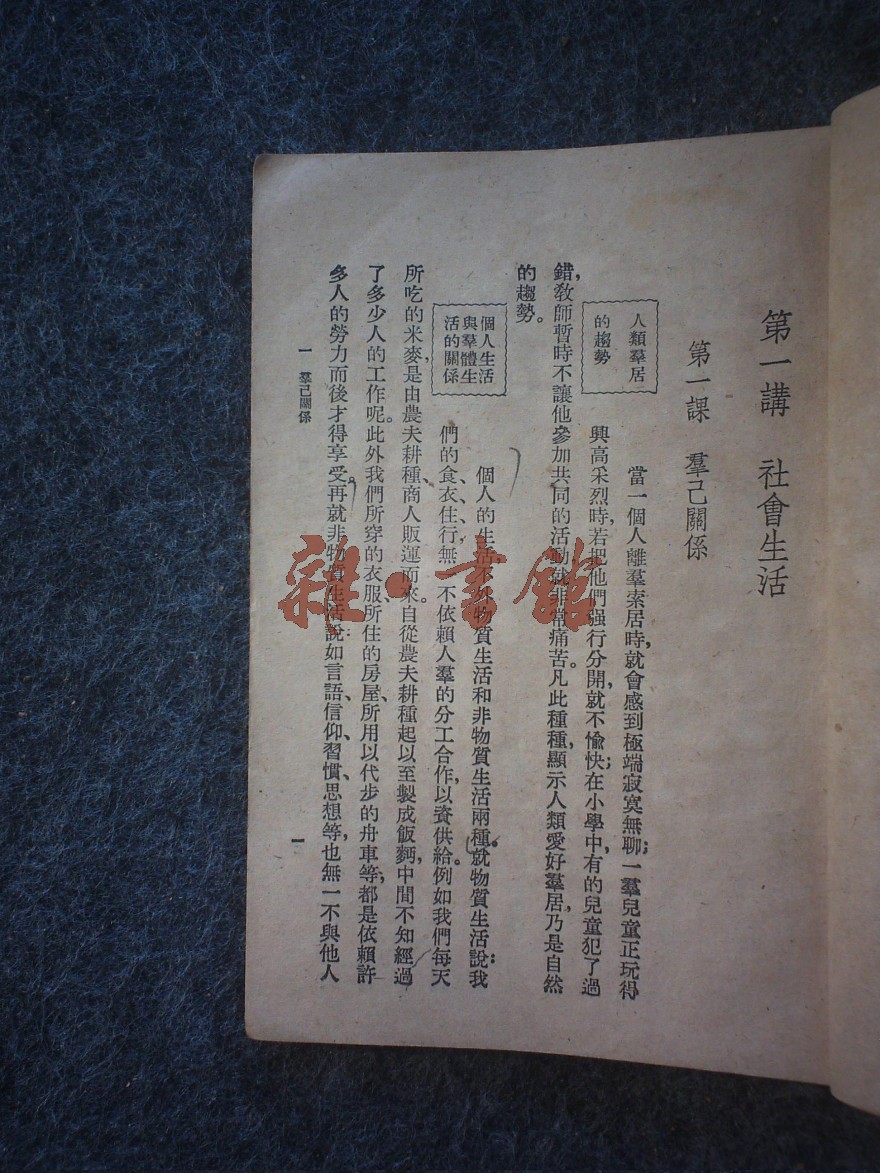 第一講　社會生活
第一課　羣己關係
人類羣居
的趨勢
當一個人離羣索居時，就會感到極端寂寞無聊；一羣兒童正玩得
興高采烈時，若把他們强行分開，就不愉快；在小學中，有的兒童犯了過
錯，敎師暫時不讓他參加共同的活動，就非常痛苦。凡此種種，顯示人類愛好羣居，乃是自然
的趨勢。
個人生活
與羣體生
活的關係
個人的生活不外物質生活和非物質生活兩種。就物質生活說：我
們的食、衣、住、行，無一不依賴人羣的分工合作，以資供給。例如我們每天
所吃的米麥，是由農夫耕種、商人販運而來。自從農夫耕種起以至製成飯麪，中間不知經過
了多少人的工作呢。此外我們所穿的衣服、所住的房屋、所用以代步的舟車等，都是依賴許
多人的勞力而後才得享受。再就非物質生活說：如言語、信仰、習慣、思想等，也無一不與他人
一　羣己關係
一
雜·書館